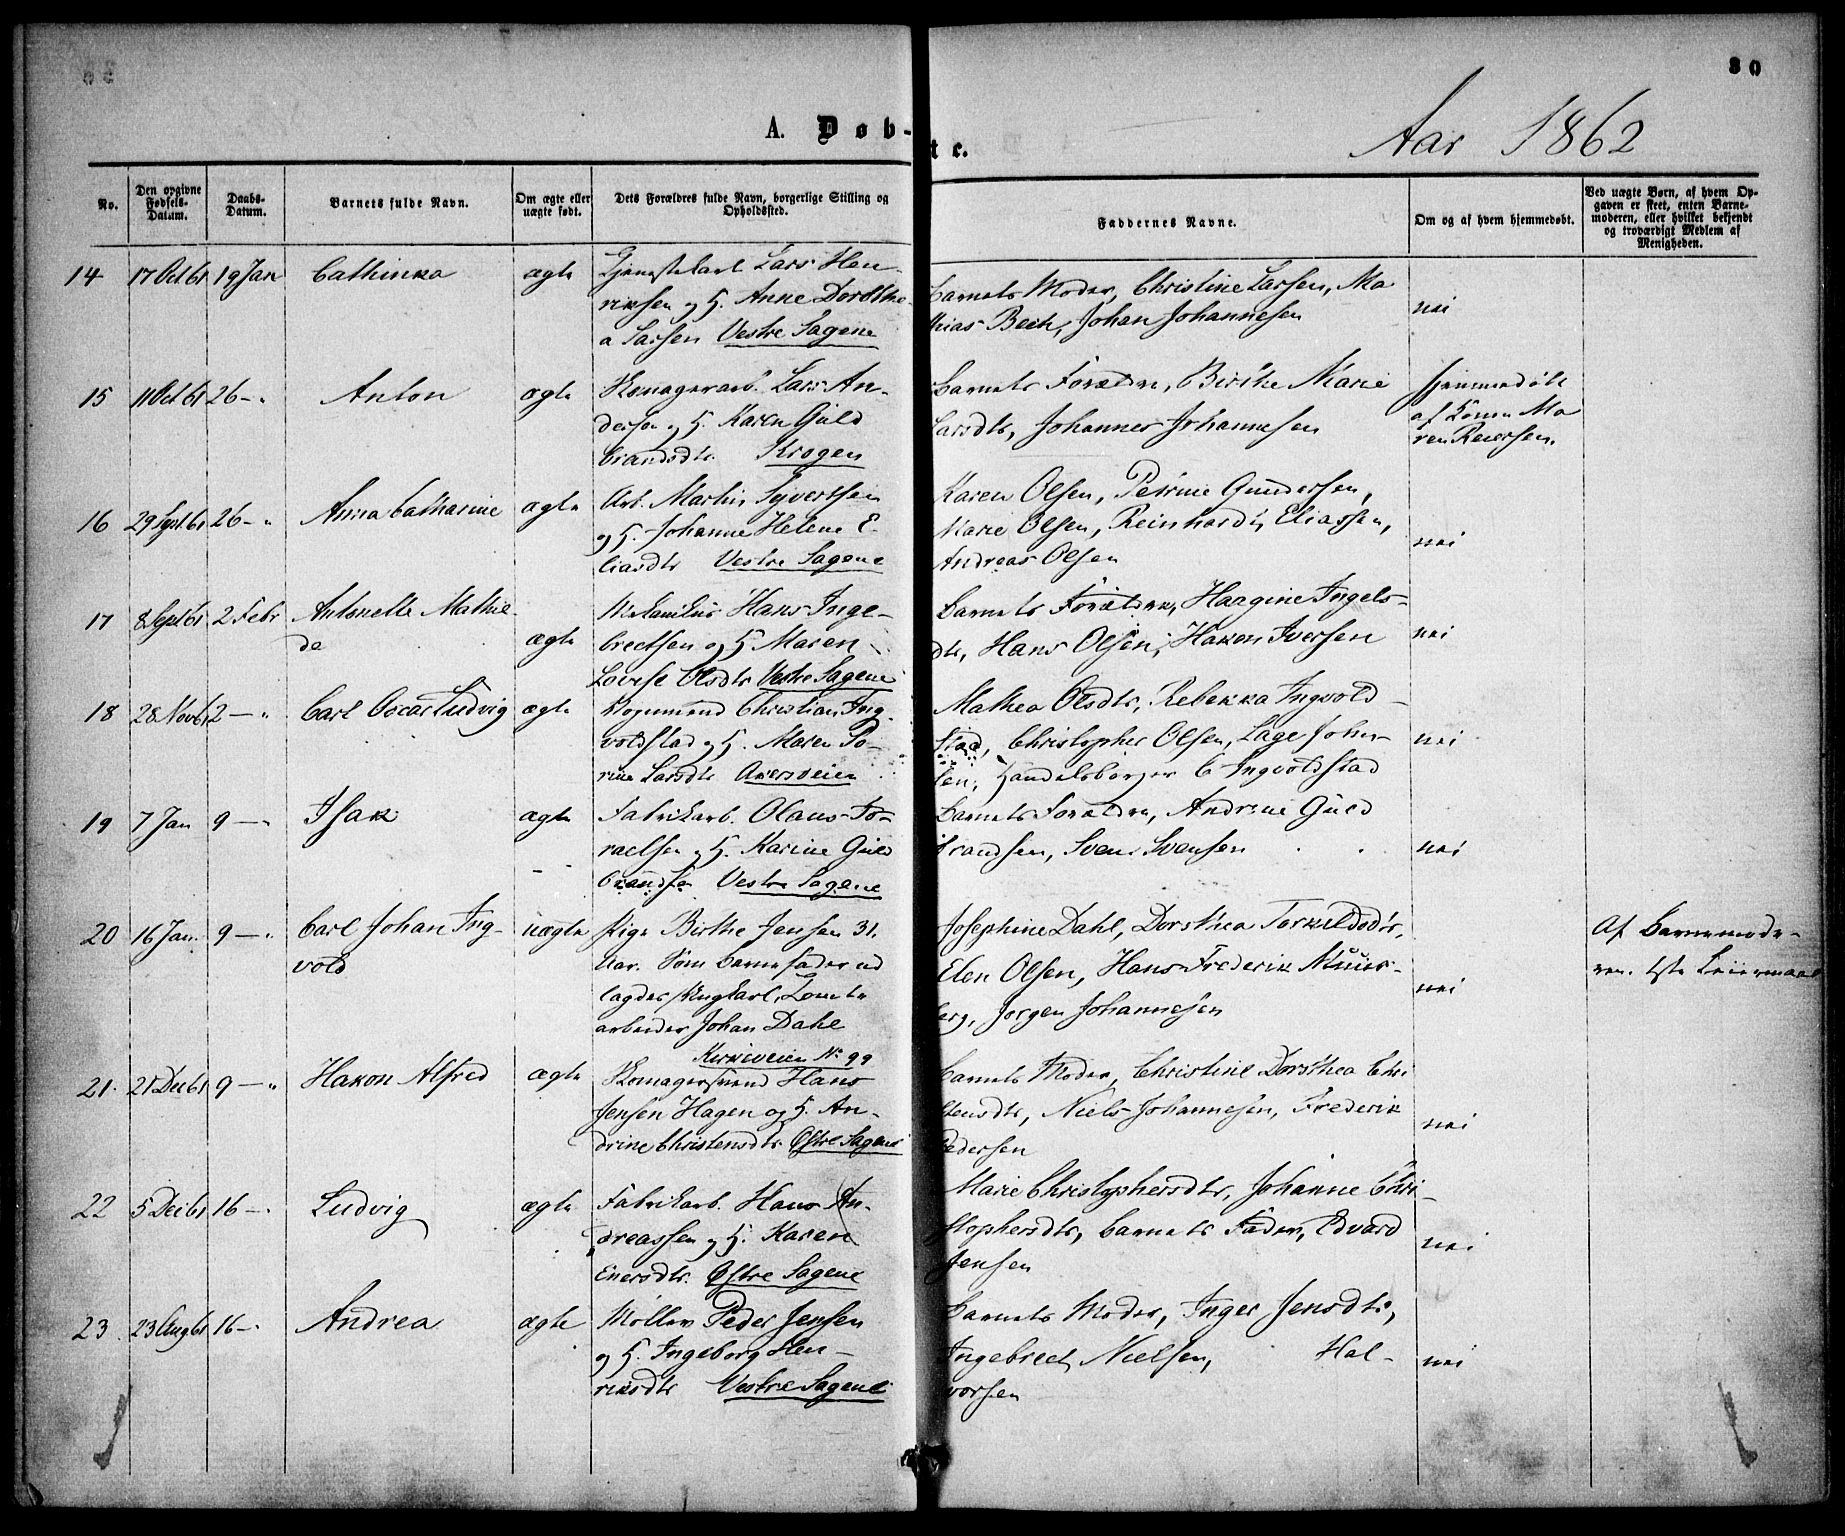 80
A. Døb-
te.
Aar 1862
No.
Den opgivne Fødsels-Datum.
Daabs-Datum.
Barnets fulde Navn.
Om ægte eller uægte født.
Dets Forældres fulde Navn, borgerlige Stilling og Opholdssted.
Faddernes Navne.
Om og af hvem hjemmedøbt.
Ved uægte Børn, af hvem Opgaven er skeet, enten Barnemoderen, eller hvilket bekjendt og troværdigt Medlem af Menigheden.
14 17 Oct 61 19 Jan Cathinka ægte
Tjenestekarl Lars Hen-
riksen og H. Anne Dorothe-
a Larsen Vestre Sagene
Barnets Moder, Christine Larsen, Ma
thias Bech, Johan Johannesen
nei
15 11 Oct 61 26 -" Anton ægte
Skomagerarb. Lars An-
dersen og H. Karen Guld
brandsdtr. Krogen
Barnets Forældre, Birthe Marie
Larsdtr, Johannes Johannesen
hjemmedøbt
af Konen Ma
ren Reiersen.
16 29 Sept 61 26 -" Anna Catharine ægte
Arb. Martin Syvertsen
og H. Johanne Helene E-
liasdtr Vestre Sagene
Karen Olsen, Petrine Gundersen,
Marie Olsen, Reinhardt Eliassen,
Andreas Olsen
nei
17 8 Sept 61 2 Febr Antonette Mathil-
de ægte
Mekanikus Hans Inge-
bretsen og H. Maren
Lovise Olsdtr Vestre Sagene
Barnets Forældre, Haagine Ingels-
dtr, Hans Olsen, Hakon Iversen
nei
18 28 Nov 61 2 -" Carl Oscar Ludvig ægte
Christian Ing-
voldstad og H. Maren So-
rine Larsdtr Akersveien
Mathea Olsdtr, Rebekka Ingvold-
stad, Christopher Olsen, Lage Johan-
sen, Handelsborger C Ingvoldstad
nei
19 7 Jan 9 -" Isak ægte
Fabrikarb. Olaus To-
raelsen og H. Karine Guld
brandsen Vestre Sagene
Barnets Forældre, Andrine Guld
brandsen, Sven Svensen
nei
20 16 Jan. 9 -" Carl Johan Ing-
vold uægte
Pige Birthe Jensen 31.
Aar. Som barnefader ud
lagdes Ungkarl, Tomte
arbeider Johan Dahl
Kirkeveien No 99
Josephine Dahl, Dorothea Torkildsdtr,
Elen Olsen, Hans Frederik
berg, Jørgen Johannesen
nei
Af Barnemode-
ren. 1ste Leiermaal
21. 21 Dec 61 9 -" Hakon Alfred ægte
Skomagersvend Hans
Jensen Hagen og H. An-
drine Christensdtr. Østre Sagene
Barnets Moder, Christine Dorothea Chri
stensdtr, Niels Johannesen, Frederik
Pedersen
nei
22 5 Dec 61 16 -" Ludvig ægte
Fabrikarb. Hans An-
dreassen og H. Karen
Enersdtr. Østre Sagene
Marie Christophersdtr, Johanne Chri-
stophersdtr, Barnets Fader, Edvard
Jensen
nei
23 23 Aug 61 16 -" Andrea ægte
Møller Peder Jensen
og H. Ingeborg Hen-
riksdtr Vestre Sagene
Barnets Moder, Inger Jensdtr,
Ingebret Nielsen, Hal-
vorsen
nei